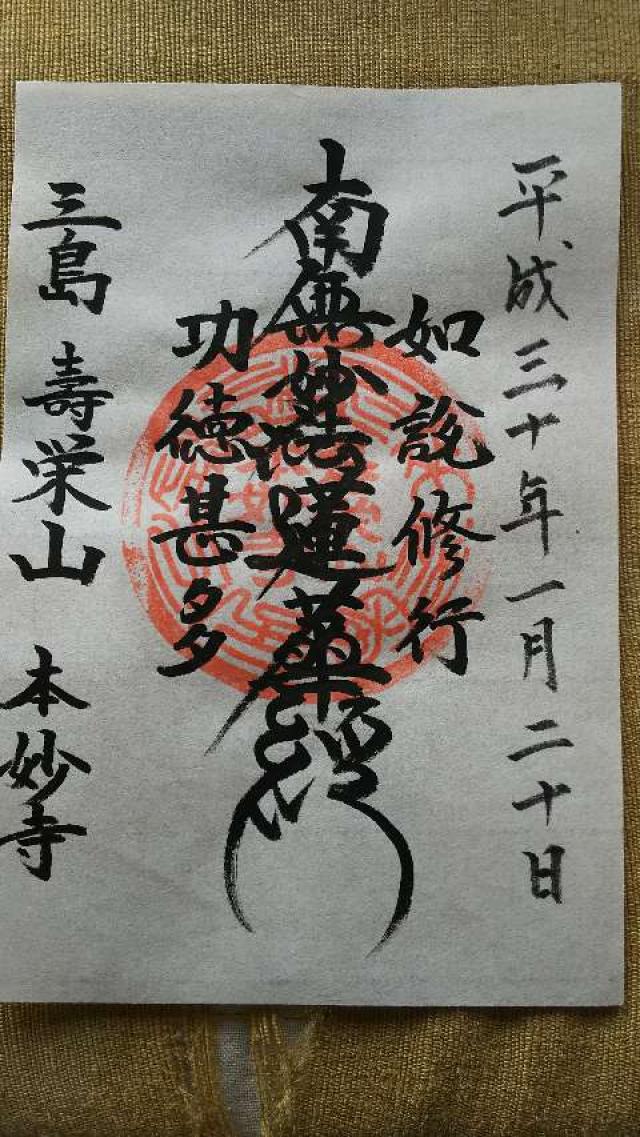 平成三十年一月二十日
如說修行
南無妙法蓮華經
功徳甚多
三島 壽栄山 本妙寺